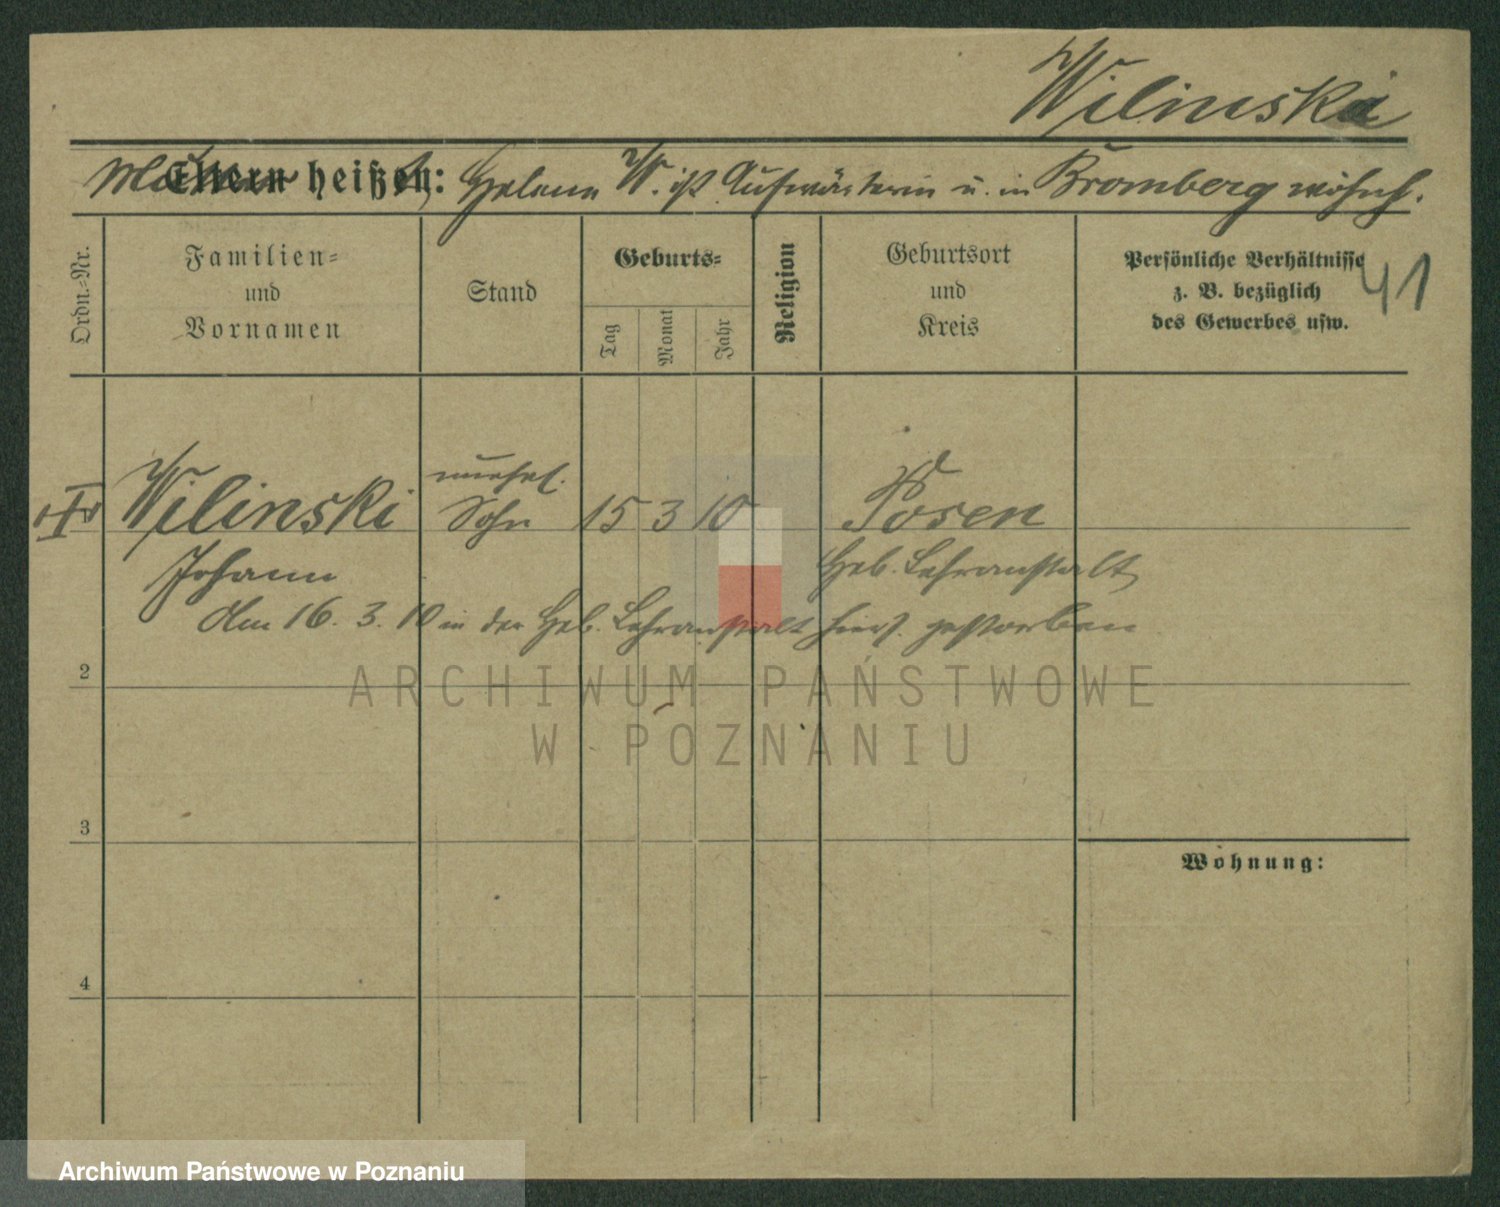 Wilinski
Mutter heißt: Helene W. ist Aufwärterin u. in Bromberg wohnh.
Ordn.-Nr.
Familien- und Vornamen
Stand
Geburts-
Tag
Monat
Jahr
Religion
Geburtsort und Kreis
Persönliche Verhältnisse
z. B. bezüglich
des Gewerbes usw.
41
unehel.
Wilinski Sohn 15 3 10 Posen
Johann Heb. Lehranstalt
Am 16. 3. 10 in der Heb. Lehranstalt hiers. gestorben
2
ARCHIWUM PAŃSTWOWE
W POZNANIU
3
Wohnung:
4
Archiwum Państwowe w Poznaniu